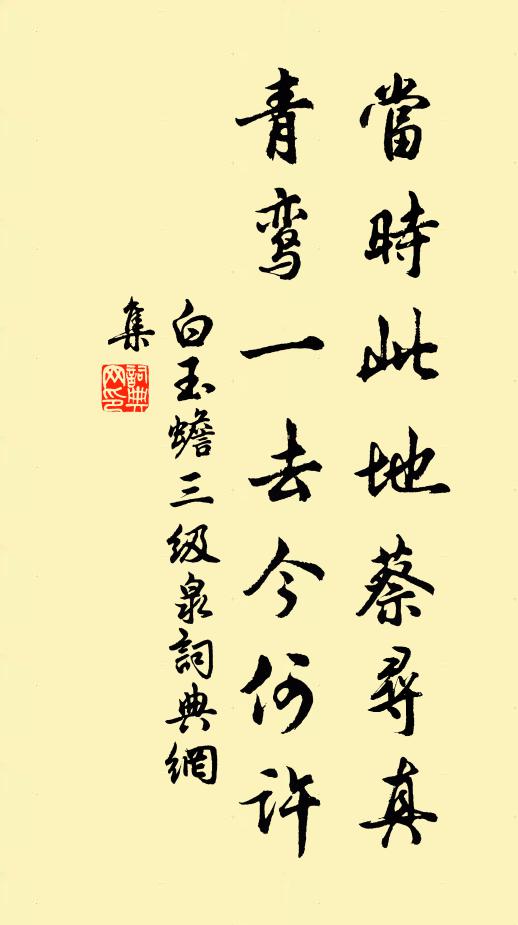 當時此地蔡尋真
青鸾一去今何許
白玉蟾三级泉詞典網
集
詞典
网印